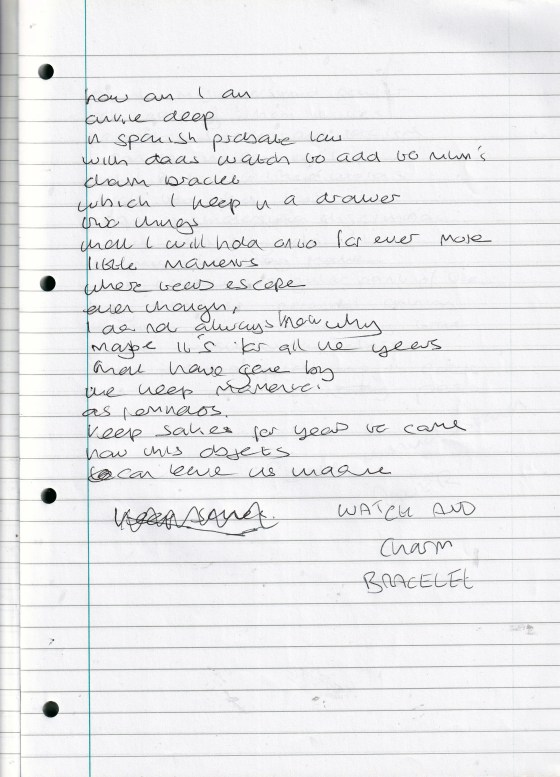 how am I am
deep
in spanish probate law
with dads watch to add to mum's
charm bracelet
which I keep in a drawer
two things
that I will hold onto for ever more
little moments
where tears escape
even though,
I do not always know why
maybe it's for all the years
that have gone by
we keep
as
keep sakes for years to come
how this objects
can leave us
WATCH AND
Charm
BRACELET